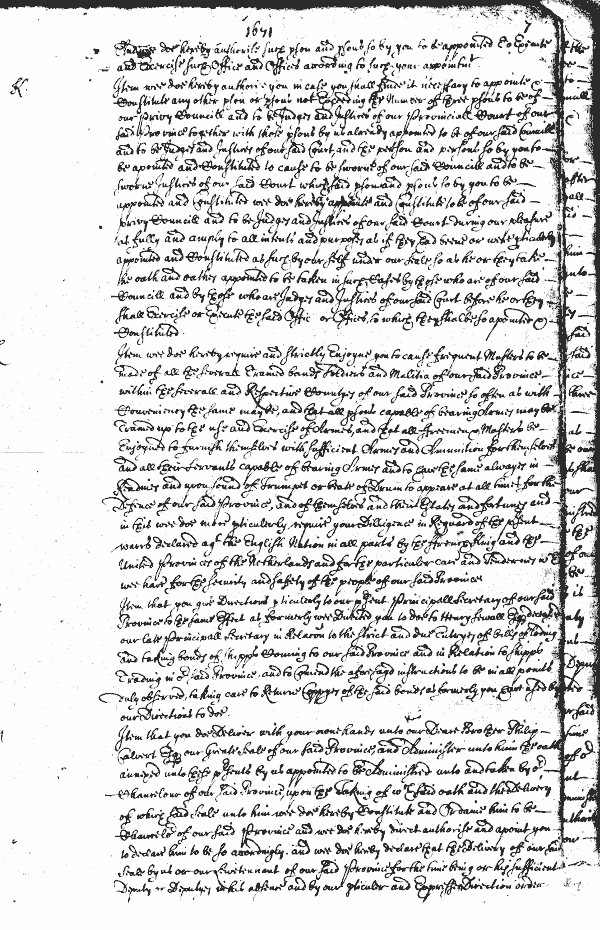 1671
7
doe hereby authorise such pson and psons so by you to be appointed to Execute
and Exercise such Office and Offices according to such your appointmt
Item wee doe hereby authorise you in case you shall finde it necessary to appointe &
Constitute any other pson or psons not Exceeding the Number of three psons to be of
our privy Councill and to be Judges and Justices of our Provinciall Court of our
said Province together with those psons by us already appointed to be of our said Councill
and to be Judges and Justices of our said Court, and the person and persons so by you to
be apointed and Constituted to cause to be sworne of our said Councill and to be
sworne Justices of our said Court which said pson and psons so by you to be
appointed and Constituted wee doe hereby appointe and Constitute to be of our said
privy Councill and to be Judges and Justices of our said Court during our pleasure
as fully and amply to all intents and purposes as if they had beene or were pticulerly
appointed and Constituted as such by our self under our seale so as he or they take
the oath and oathes appointed to be taken in such Cases by those who are of our said
Councill and by those who are Judges and Justices of our said Court before he or they
shall Exercise or Execute the said Office or Offices, to which they shalbe so apointed &
Constituted.
Item wee doe hereby require and strictly Enjoyne you to cause frequent Musters to be
made of all the severall trained bands Soldiers and Malitia of our said Province
within the severall and Respective Countyes of our said Province so often as with
Conveniency the same may be, and that all psons capable of bearing Armes may be
trained up to the use and Exercise of Armes, and that all freemen & Masters be
Enjoyned to furnish themselves with sufficient Armes and Amunition for themselves
and all their servants capable of bearing Armes and to have the same always in
Readines and upon sound of Trumpet or beate of Drum to appeare at all times for the
Defence of our said Province, and of themselves and their Estates and fortunes and
in this wee doe more pticulerly require your Dilligence in Reguard of the psent
warrs declared agt the English Nation in all parts by the french King and the
United Provinces of the Netherlands and for the particuler care and tendernes
wee have for the security and safety of the people of our said Province
Item that you give Directions pticulerly to our psent Principall Secretary of our said
Province to the same Effect as formerly wee Directed you to doe to Henry Sewall Esqr deceased
our late Principall Secretary in Relacon to the strict and due Entryes of
and taking bonds of shipps Coming to our said Province and in Relation to shipps
trading in or said Province, and to Comand the aforesaid instructions to be in all points
duly observed, taking care to Returne Coppyes of the said bonds as formerly you have used by
our Directions to doe.
Item that you doe Deliver with your owne hands unto our Deare Brother Philip
Calvert Esqr our Greate Seale of our said Province, and Administer unto him the oath
annexed unto these psents by us appointed to be Administred unto and taken by or
Chancelour of our said Province upon the taking of wch said oath and the Delivery
of which said seale unto him wee doe hereby Constitute and Ordaine him to be
Chancelor of our said Province and wee doe hereby direct authorise and apoint you
to declare him to be so accordingly. and wee doe hereby declare that the Delivery of our said
seale by us or our Lieutennant of our said Province for the time being or his sufficient
Deputy or Deputyes in his absence and by our pticuler and Expresse Direction order